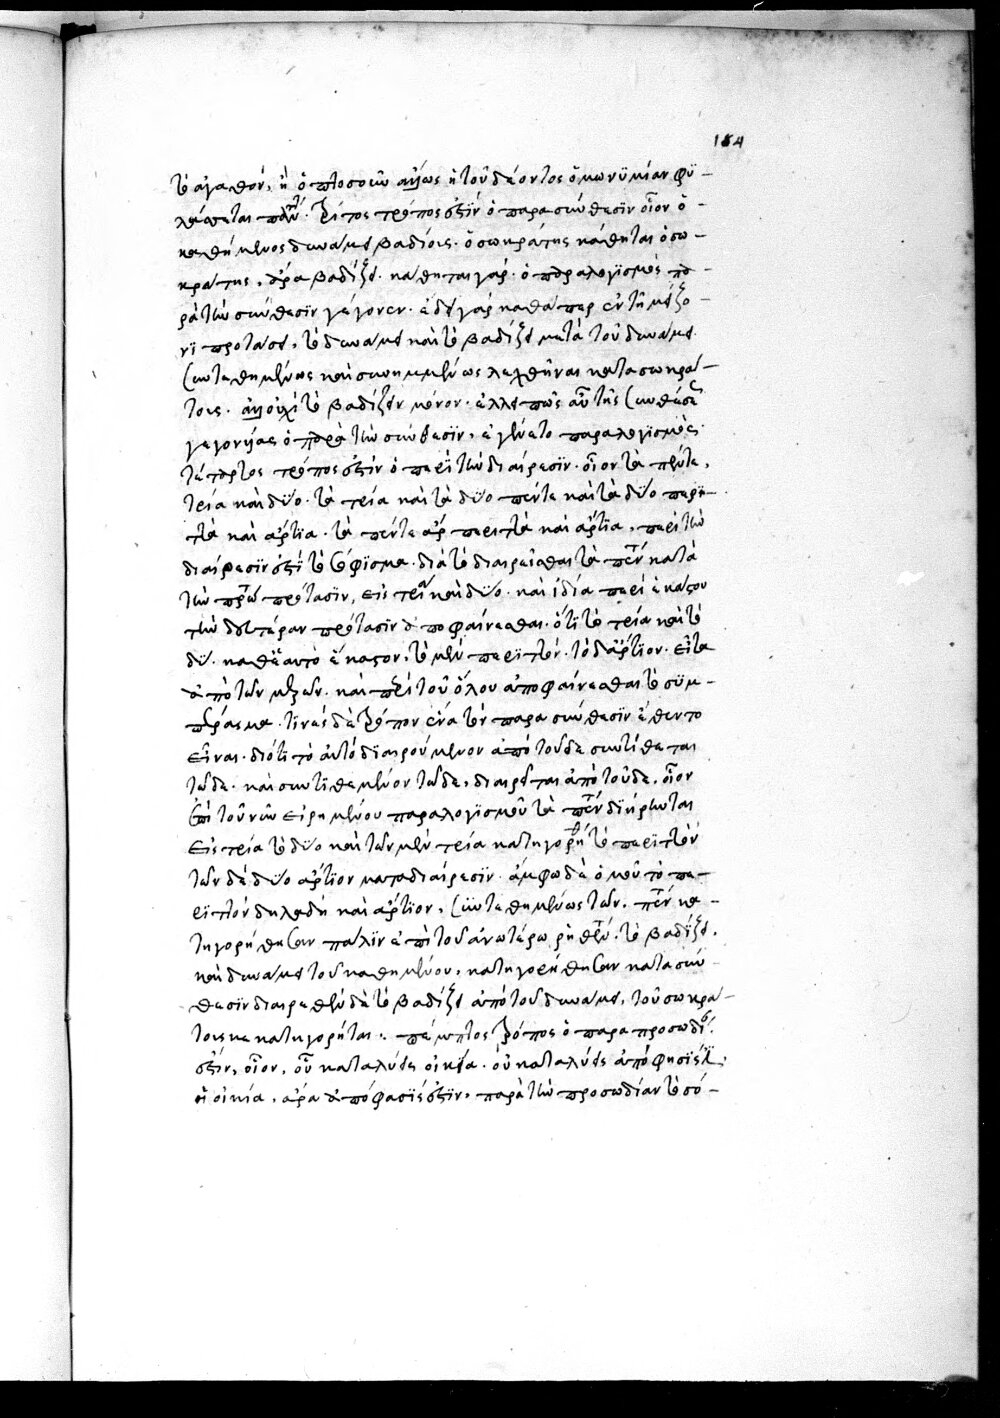 154
τὸ ἀγαθόν, ἢ ὁπωσοῦν ἄλλως ἡ τοῦ δέοντος ὁμωνυμίαν φυ-
λάττεται Τρίτος τρόπος ἐστὶν ὁ παρὰ σύνθεσϊν οἷον ὁ
καθήμενος δύναται βαδίσαι. ὁ σωκράτης κάθηται ὁ σω-
κράτης, ἄρα βαδίζει. κάθηται γάρ. ὁ παραλογϊσμὸς πα-
ρὰ τὴν σύνθεσϊν γέγονεν. ἔδει γὰρ καθάπερ ἐν τῇ μείζο-
νϊ προτάσει, τὸ δύναται καὶ τὸ βαδίζει μετὰ τοῦ δύναται
συντεθειμένως καὶ συνημμένως λεχθῆναι κατὰ σωκρά-
τους. ἀλλ' οὐχὶ τὸ βαδίζειν μόνον. αὐτῆς συνθέσεως
γεγονυίας ὁ παρὰ τὴν σύνθεσϊν, ἐγένετο παραλογϊσμός.
τέταρτος τρόπος ἐστὶν ὁ περὶ τὴν διαίρεσϊν. οἷον τὰ πέντε,
τρία καὶ δύο. τὰ τρία καὶ τὰ δύο πέντε καὶ τὰ δύο περϊτ-
τὰ καὶ ἄρτϊα. τὰ πέντε ἄρα περιττὰ καὶ ἄρτϊα, περὶ τὴν
διαίρεσϊν ἐστϊ τὸ σόφϊσμα. διὰ τὸ διαιρεῖσθαι τὰ πέντε κατὰ
τὴν πρώτην πρότασϊν, εἰς τρία καὶ δύο. καὶ ἰδία περὶ ἑκάστου
τὴν δευτέραν πρότασϊν ἀποφαίνεσθαι. ὅτϊ τὸ τρία καὶ τὸ
δύο. καθ' ἑαυτὸ ἕκαστον, τὸ μὲν περϊττόν. τὸ δ' ἄρτϊον. εἶτα
ἀπὸ τῶν μερῶν. καὶ περὶ τοῦ ὅλου ἀποφαίνεσθαι τὸ συμ-
πέρασμα. τινὲς δὲ τρόπον ἕνα τὸν παρὰ σύνθεσϊν ἔθεντο
εἶναι. διότϊ τὸ αὐτὸ δϊαιρούμενον ἀπὸ τοῦδε συντίθεται
τῶδε. καὶ συντϊθεμένον τῶδε, διαιρεῖται ἀπὸ τοῦδε, οἷον
ἐπὶ τοῦ νῦν εἰρημένου παραλογϊσμοῦ τὰ πέντε διήρηνται
εἰς τρία τὸ δύο καὶ τῶν μὲν τρία κατηγορήθη τὸ περϊττόν
τῶν δὲ δύο ἄρτϊον κατὰ διαίρεσϊν. ἄμφω δὲ ὁμοῦ τὸ πε-
ρϊττὸν δηλαδὴ καὶ ἄρτϊον, συντεθειμένως τῶν. πέντε κα-
τηγορήθησαν πάλϊν ἐπὶ τοῦ ἀνωτέρω ῥηθέντος. τὸ βαδίζει.
καὶ δύναται τοῦ καθημένου, κατηγορήθησαν κατὰ σύν-
θεσϊν διαιρεθὲν δὲ τὸ βαδίζει ἀπὸ τοῦ δύναται, τοῦ σωκρά-
τους κατηγορῆται. πέμπτος τρόπος ὁ παρὰ προσωδίαν
ἐστὶν, οἷον, οὗ καταλύεις οἰκία. οὐ καταλύεις ἀπόφησϊς ἐστϊ.
οἰκία, ἄρα ἀπόφασϊς ἐστϊν, παρὰ τὴν προσωδίαν τὸ σό-